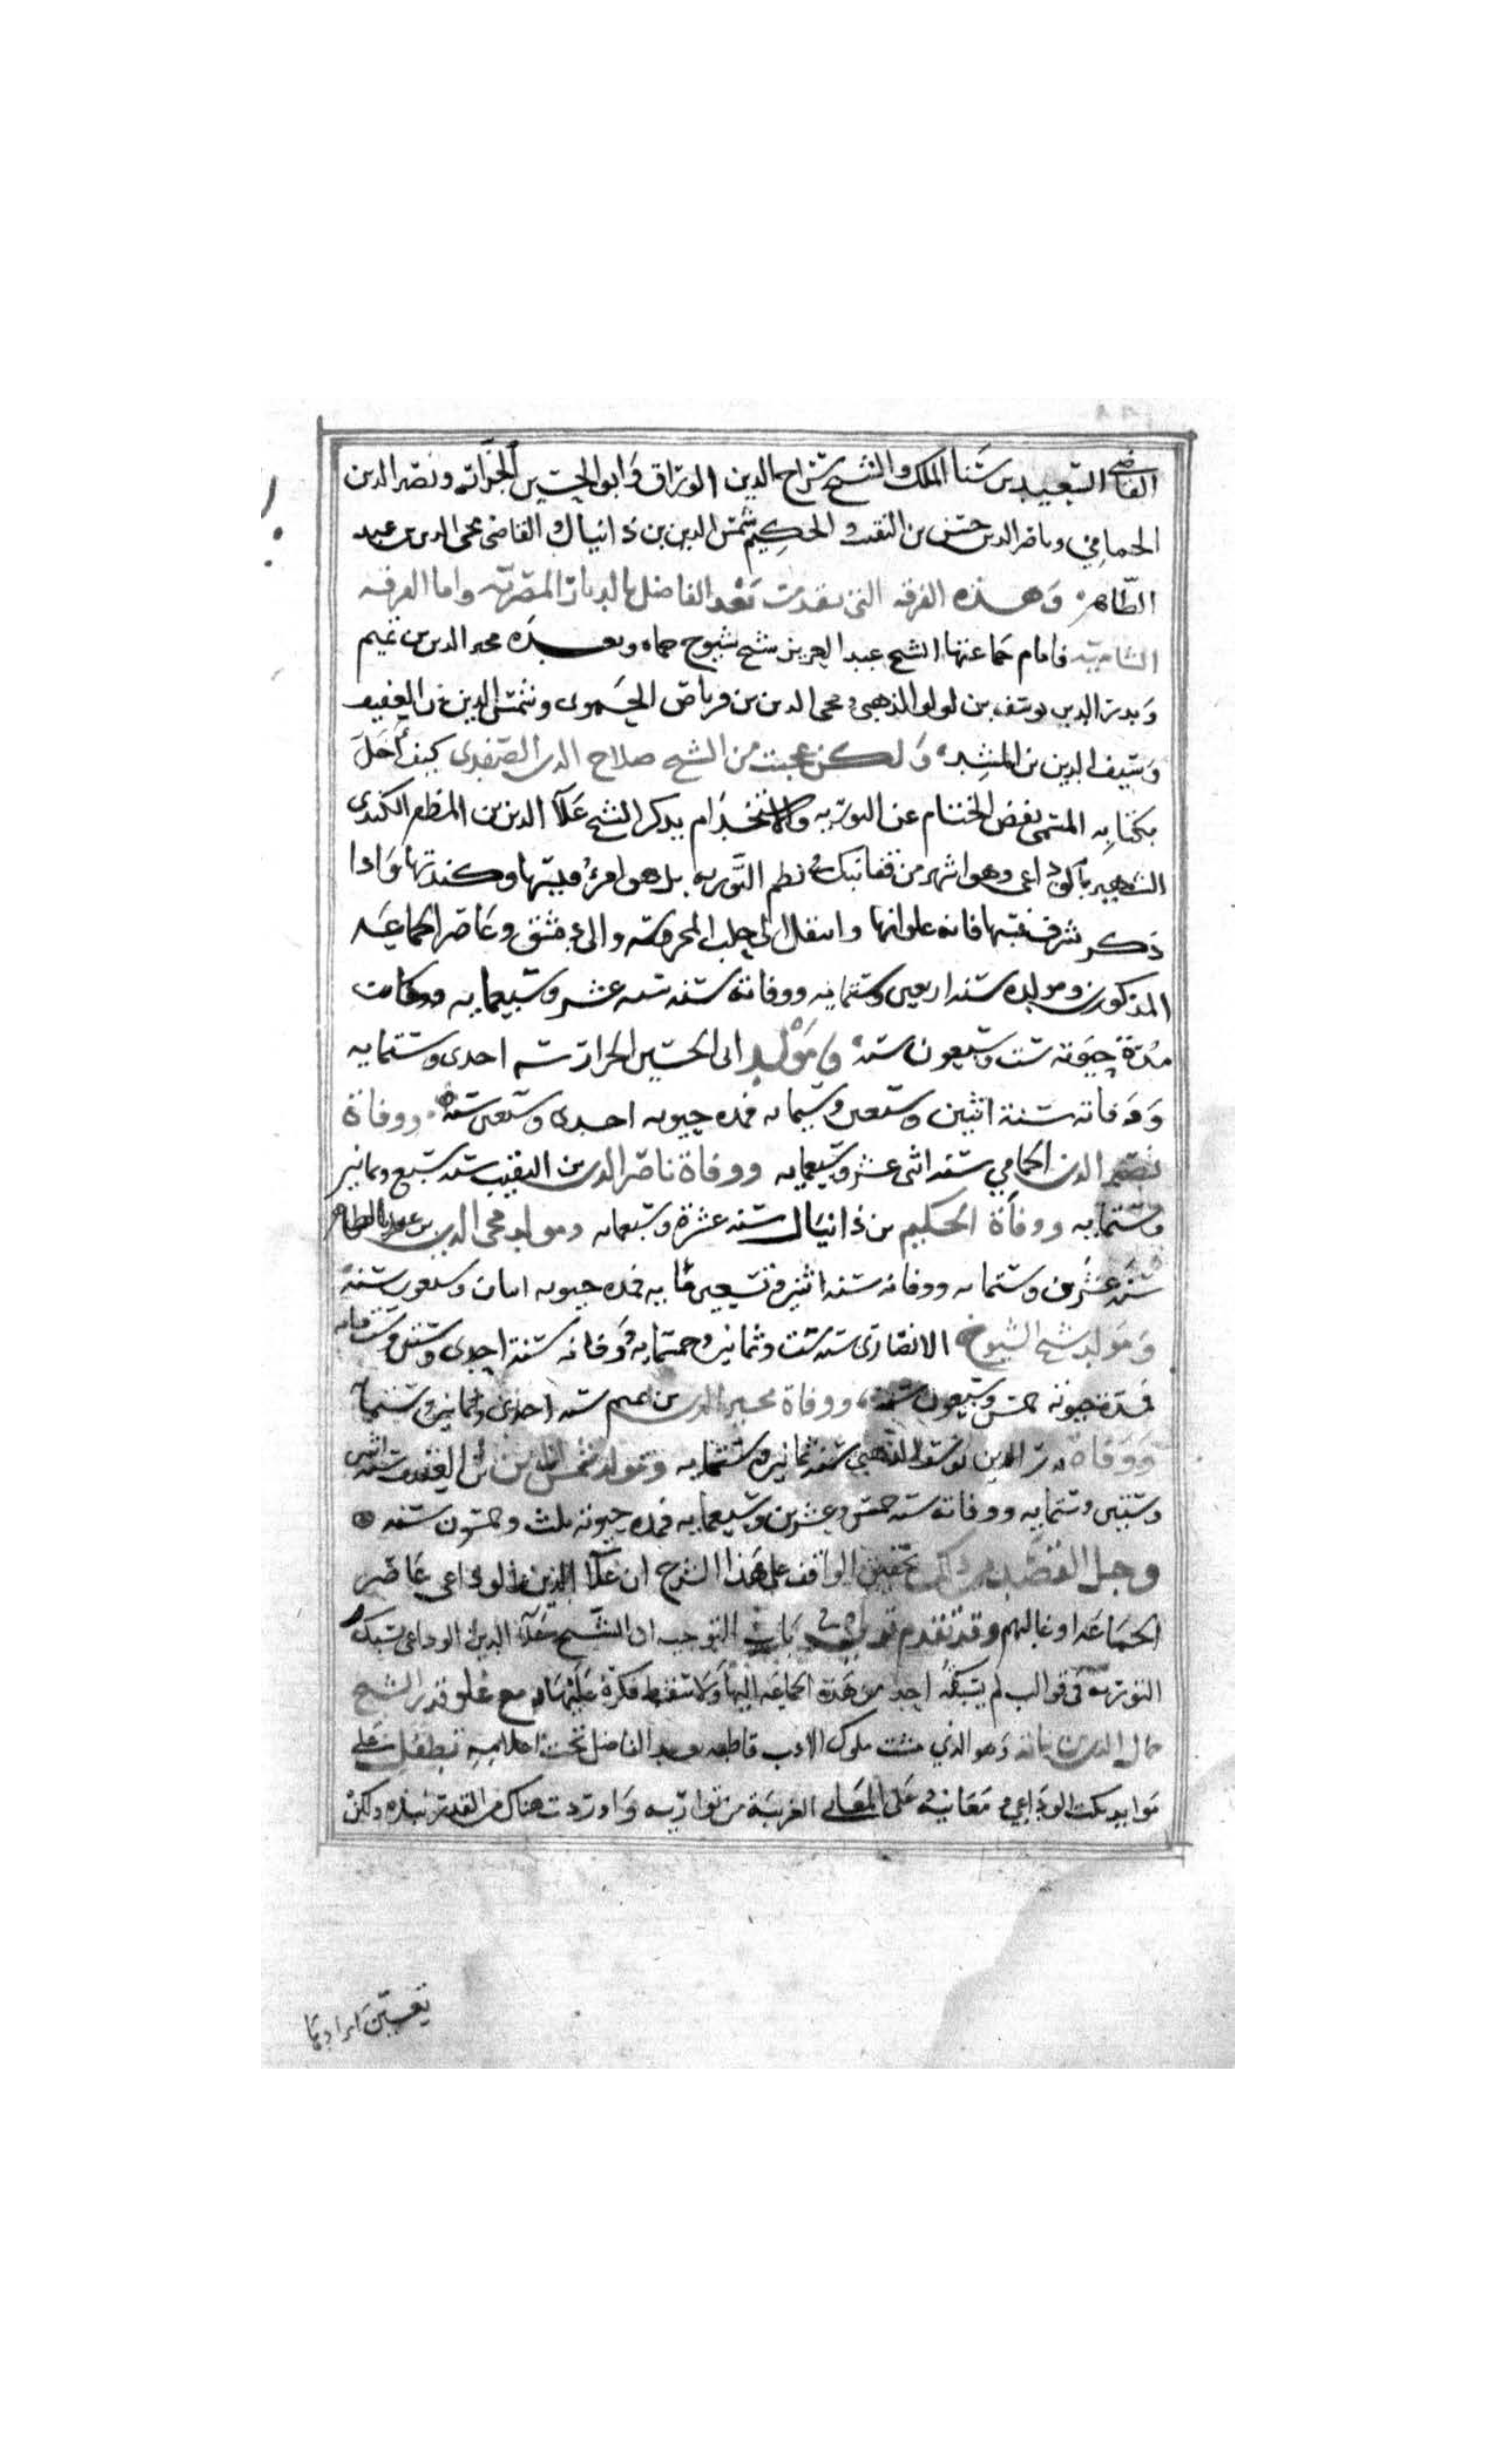 القاضي السعيد بن سنا الملك والشيخ سراج الدين الوراق وابو الحسين الجزار ونصر الدين
الحمامي وناصر الدين حسن بن النقيب والحكيم شمس الدين بن دانيال والقاضي محي الدين بن عبد
الظاهر وهذه الفرقه التي تقدمت بعد الفاضل بالديار المصريه واما الفرقه
الشاميه فامام جماعتها الشيخ عبد العزيز شيخ شيوخ حماه وبعده مجير الدين بن تميم
وبدر الدين يوسف بن لولو الذهبي ومحي الدين بن قرناص الحموي وشمس الدين بن العفيف
وسيف الدين بن المشد ولكن عجبت من الشيخ صلاح الدين الصفدي كيف أخل
بكتابه المسمى بفض الختام عن التوريه والاستخدام بذكر الشيخ علآ الدين بن المظفر الكندي
الشهير بالوداعي وهو اشهر من قفا نبك في نظم التوريه بل هو امرؤ قيسها وكندتها واذا
ذكر شرف نسبتها فانه علوانها وانتقل الى حلب المحروسه والى دمشق وعاصر الجماعه
المذكورين ومولده سنه اربعين وستمايه ووفاته سنه سته عشر وسبعمايه وكانت
مدة حيوته ست وسبعون سنه ومولد ابي الحسين الجزار سنه احدى وستمايه
ووفاته سنة اثنين وسبعين وستمايه فمده حيوته احدى وسبعين سنه ووفاة
نصير الدين الحمامي سنه اثني عشر وسبعمايه ووفاة ناصر الدين بن النقيب سنه سبع وثمانين
وستمايه ووفاة الحكيم بن دانيال سنه عشرة وسبعمايه ومولد محي الدين بن عبد الظاهر
سنه عشرين وستمايه ووفاته سنه اثنين وتسعين مايه فمده حيوته اثنان وسبعون سنة
ومولد شيخ الشيوخ الانصاري سنه ست وثمانين وخمسمايه ووفاته سنة احدى وستين وستمايه
فمدة حيوته خمس وسبعون سنة ووفاة مجير الدين بن تميم سنه احدى وثمانين وستمايه
ووفاة بدر الدين يوسف الذهبي سنة ثمانين وستمايه ومولد شمس الدين بن العفيف سنه اثنى
وستين وستمايه ووفاته سنه خمس وعشرين وسبعمايه فمده حيوته ثلث وخمسون سنه
وجل القصد من ذلك تحقيق الواقف على هذا الشرح ان علآ الدين الوداعي عاصر
الجماعه او غالبهم وقد تقدم قولي في باب التوجيه ان الشيخ علآ الدين الوداعي سبك
التوريه في قوالب لم يسبقه احد من هذه الجماعه اليها ولا سقط فكرة عليها مع علو قدر الشيخ
جمال الدين بن نباته وهو الذي مشت ملوك الادب قاطبه بعد الفاضل تحت اعلامه تطفل على
موايد نكت الوداعي ومعانيه على المعاني الغريبة من تواريه واوردت هناك من القدر نبذه ولكن
تعين ايرادها